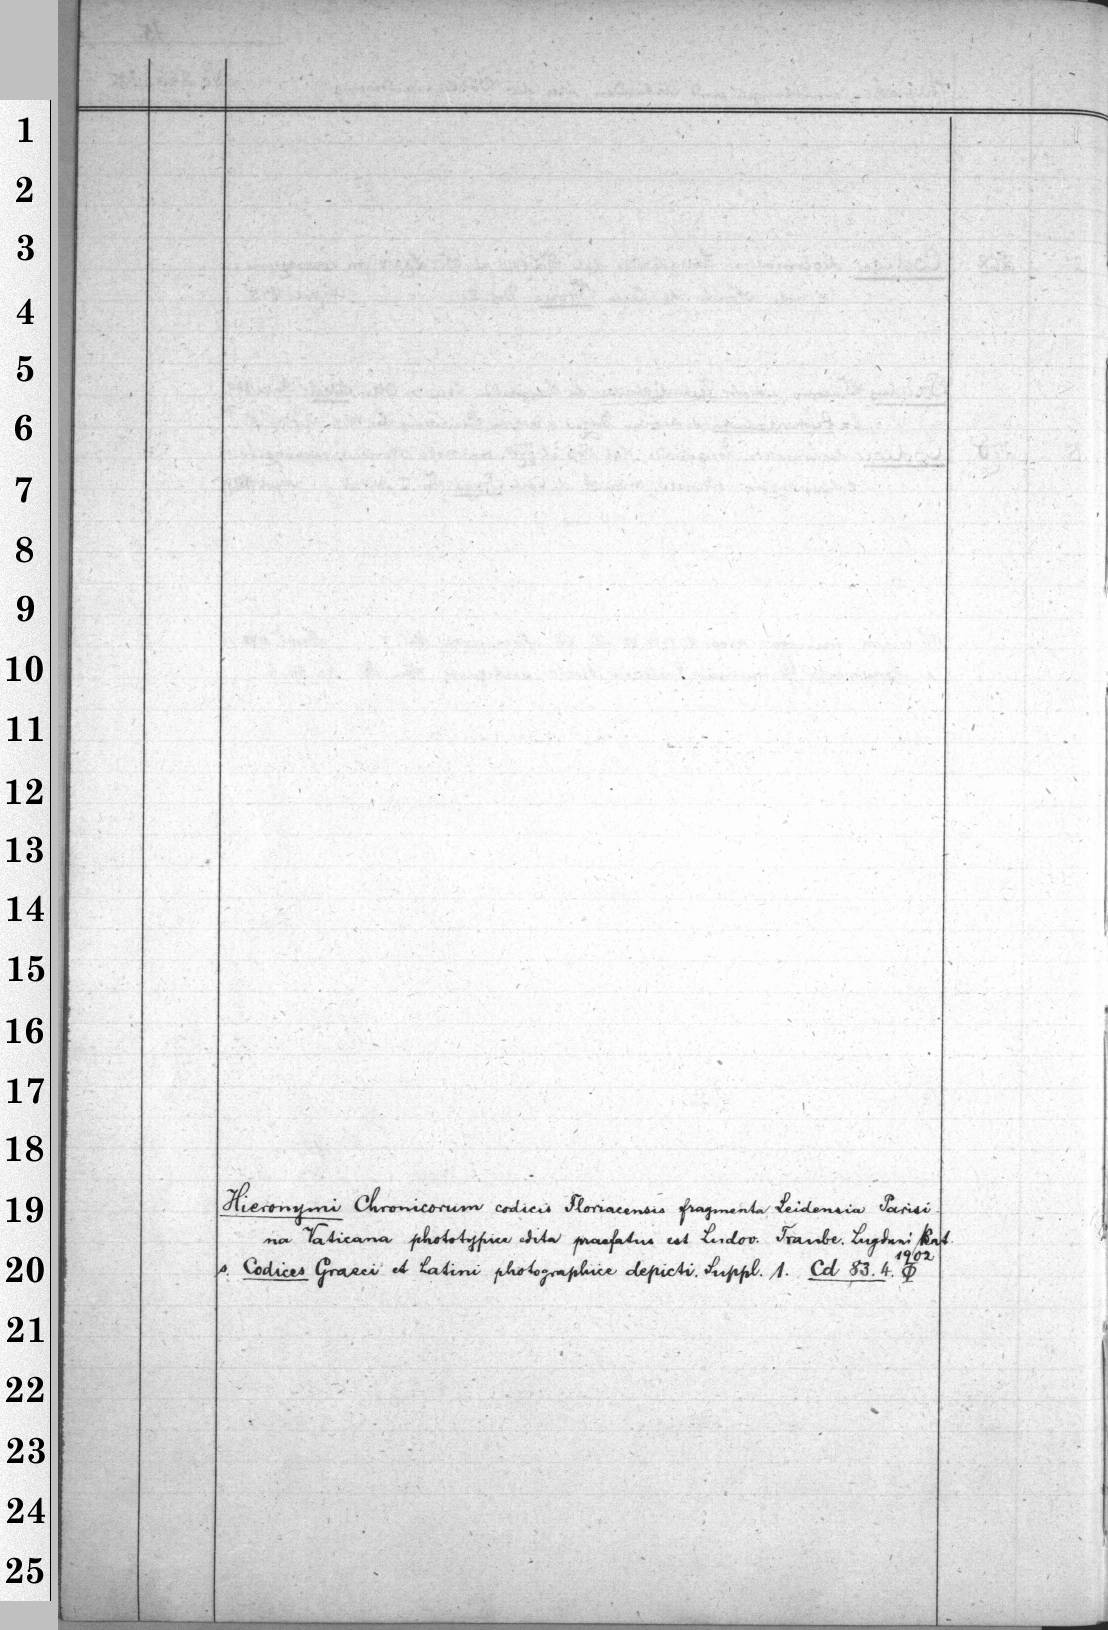 1
2
3
4
5
6
7
8
9
10
11
12
13
14
15
16
17
18
19
20
21
22
23
24
25
Hieronymi Chronicorum codicis Floriacensis fragmenta Leidensia Parisi-
na Vaticana phototypice edita praefatus est Ludov. Traube. Lugduni Bat.
1902
s. Codices Graeci et Latini photographice depicti. Suppl. 1. Cd 83.4. Φ